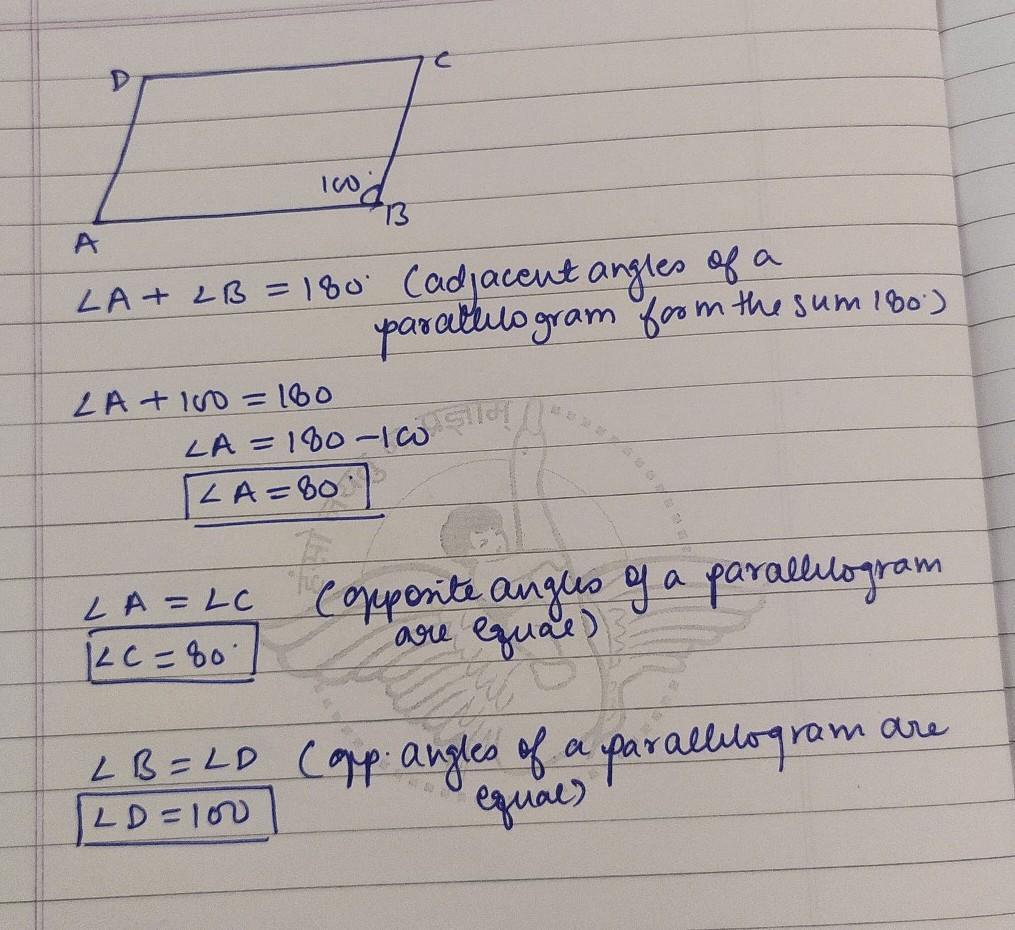 D C
100°
A B
∠A + ∠B = 180° (adjacent angles of a
parallelogram form the sum 180°)
∠A + 100 = 180
∠A = 180 - 100
∠A = 80°
∠A = ∠C (opposite angles of a parallelogram
are equal)
∠C = 80°
∠B = ∠D (opp. angles of a parallelogram are
equal)
∠D = 100
प्रज्ञाम्